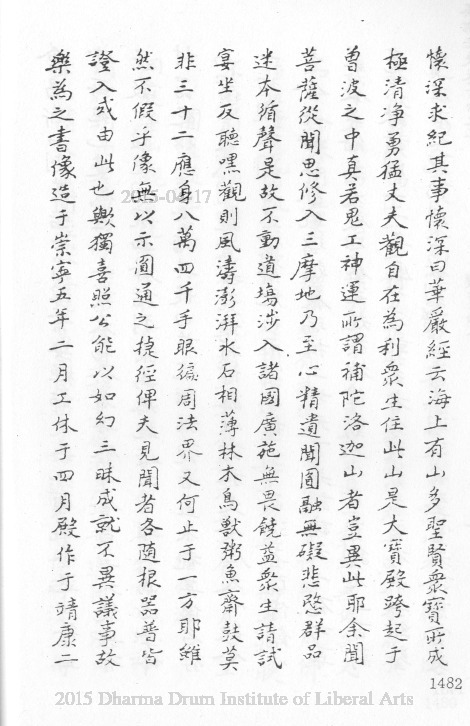 懷深求紀其事懷深曰華嚴經云海上有山多聖賢衆寶所成
極清淨勇猛丈夫觀自在為利衆生住此山是大寶殿跨起于
曾波之中真若鬼工神運所謂補陀洛迦山者豈異此耶余聞
菩薩從聞思修入三摩地乃至心精遺聞圓融無礙悲愍群品
迷本循聲是故不動道場涉入諸國廣施無畏饒益衆生請試
宴坐反聽嘿觀則風濤澎湃水石相薄林木鳥獸粥魚齋鼓莫
非三十二應身八萬四千手眼徧周法界又何止于一方耶雖
然不假乎像無以示圓通之捷徑俾夫見聞者各随根器普皆
證入或由此也歟獨喜照公能以如幻三昧成就不異議事故
樂為之書像造于崇寧五年二月工休于四月殿作于靖康二
1482
2015-04-17
2015 Dharma Drum Institute of Liberal Arts